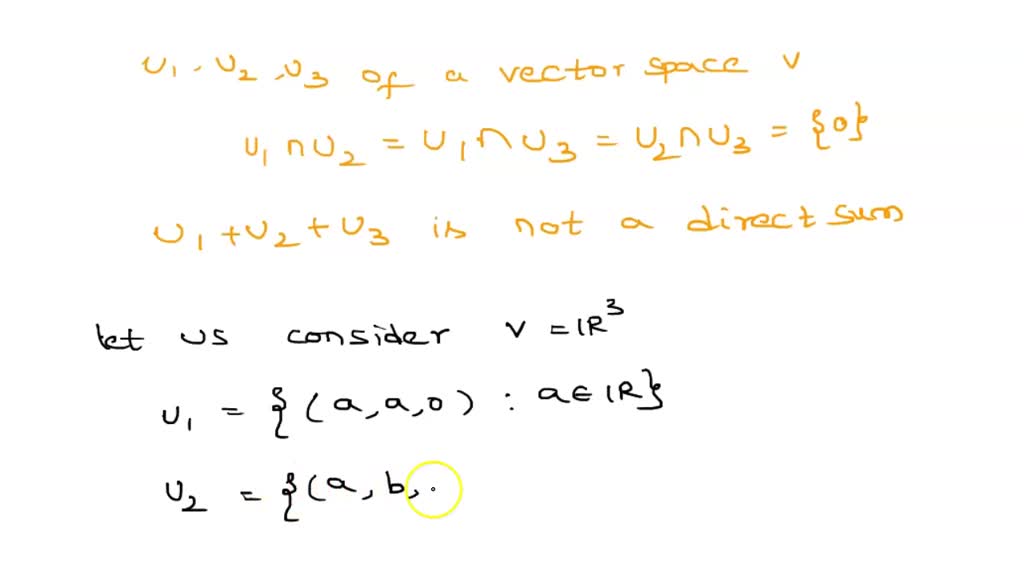 U₁, U₂, U₃ of a vector space V
U₁ ∩ U₂ = U₁ ∩ U₃ = U₂ ∩ U₃ = {0}
U₁ + U₂ + U₃ is not a direct sum
let us consider V = ℝ³
U₁ = {(a, a, 0) : a ∈ ℝ}
U₂ = {(a, b, .